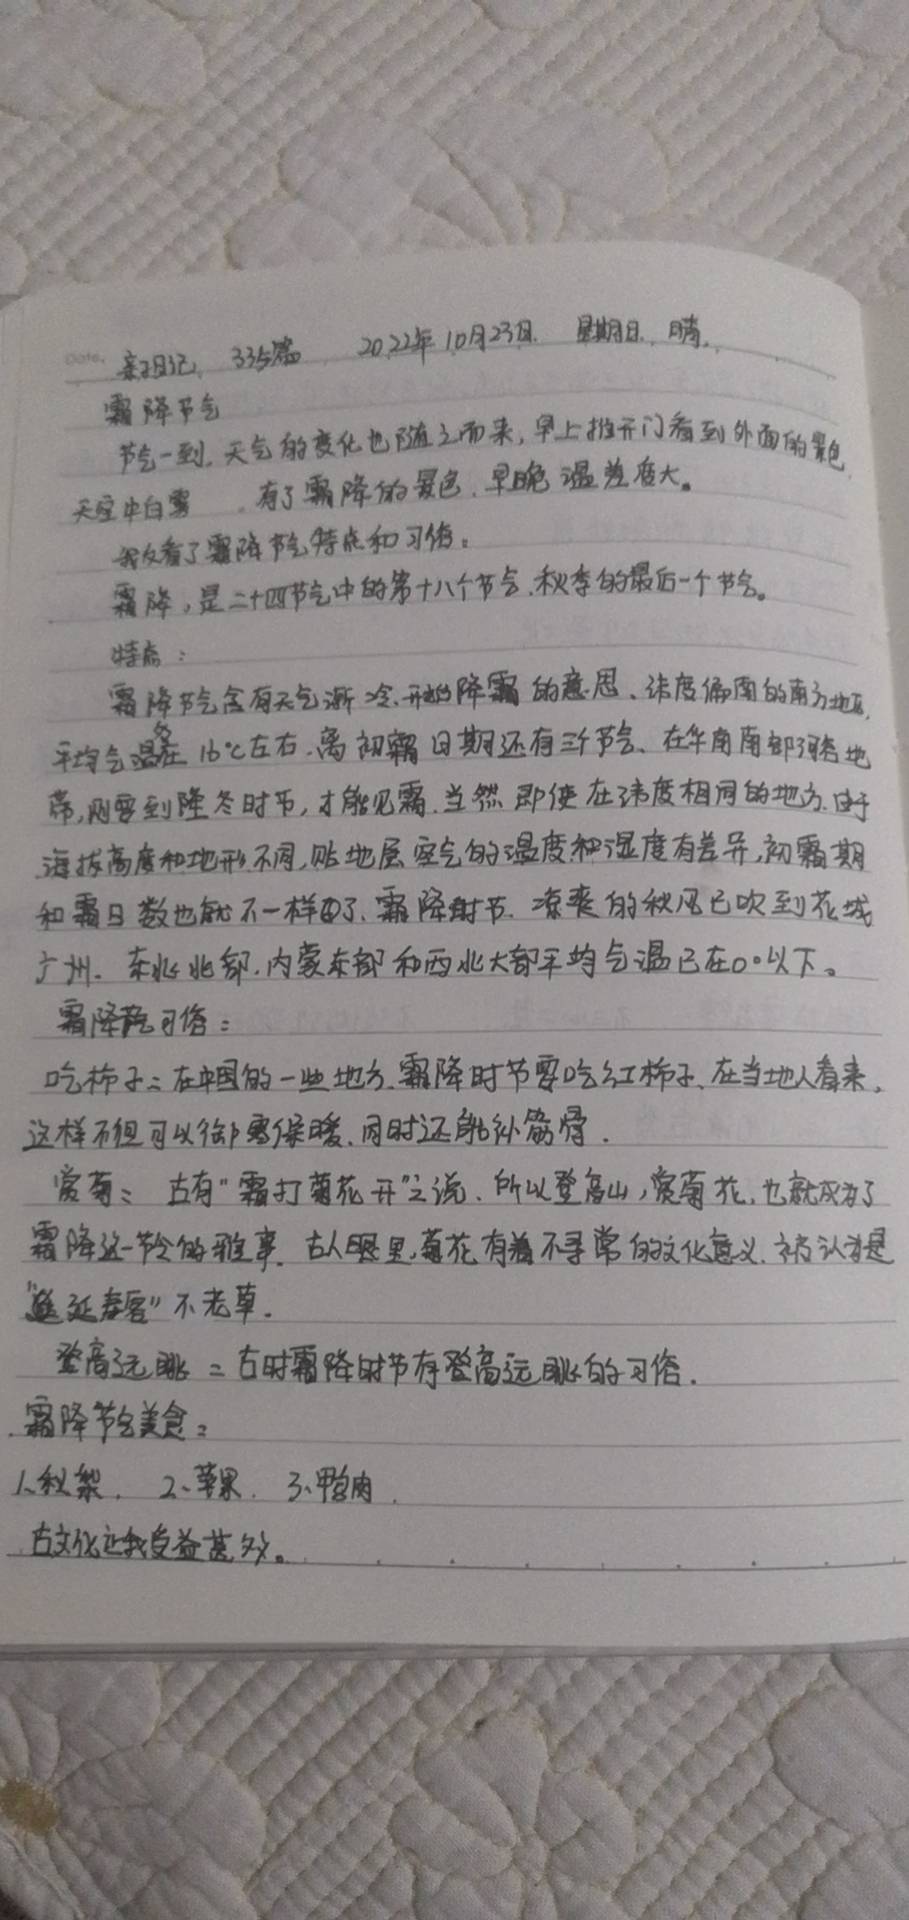 Date.
亲子日记 335篇 2022年10月23日 星期日 晴
霜降节气
节气一到，天气的变化也随之而来，早上推开门看到外面的景色，
天空中白雾 有了霜降的景色，早晚温差度大。
我又看了霜降节气特点和习俗。
霜降，是二十四节气中的第十八个节气、秋季的最后一个节气。
特点：
霜降节气含有天气渐冷、开始降霜的意思、纬度偏南的南方地区，
平均气温多在16℃左右、离初霜日期还有三个节气、在华南南部河谷地
带，则要到隆冬时节，才能见霜、当然即使在纬度相同的地方、由于
海拔高度和地形不同，贴地层空气的温度和湿度有差异，初霜期
和霜日数也就不一样了、霜降时节、凉爽的秋风已吹到花城
广州、东北北部、内蒙东部和西北大部平均气温已在0°以下。
霜降节气习俗：
吃柿子：在中国的一些地方、霜降时节要吃红柿子、在当地人看来，
这样不但可以御寒保暖、同时还能补筋骨．
赏菊： 古有“霜打菊花开”之说、所以登高山，赏菊花，也就成为了
霜降这一节令的雅事．古人眼里，菊花有着不寻常的文化意义、被认为是
“延寿客”不老草．
登高远眺：古时霜降时节有登高远眺的习俗．
霜降节气美食：
1、秋梨． 2、苹果． 3、鸭肉．
古文化让我受益甚多。